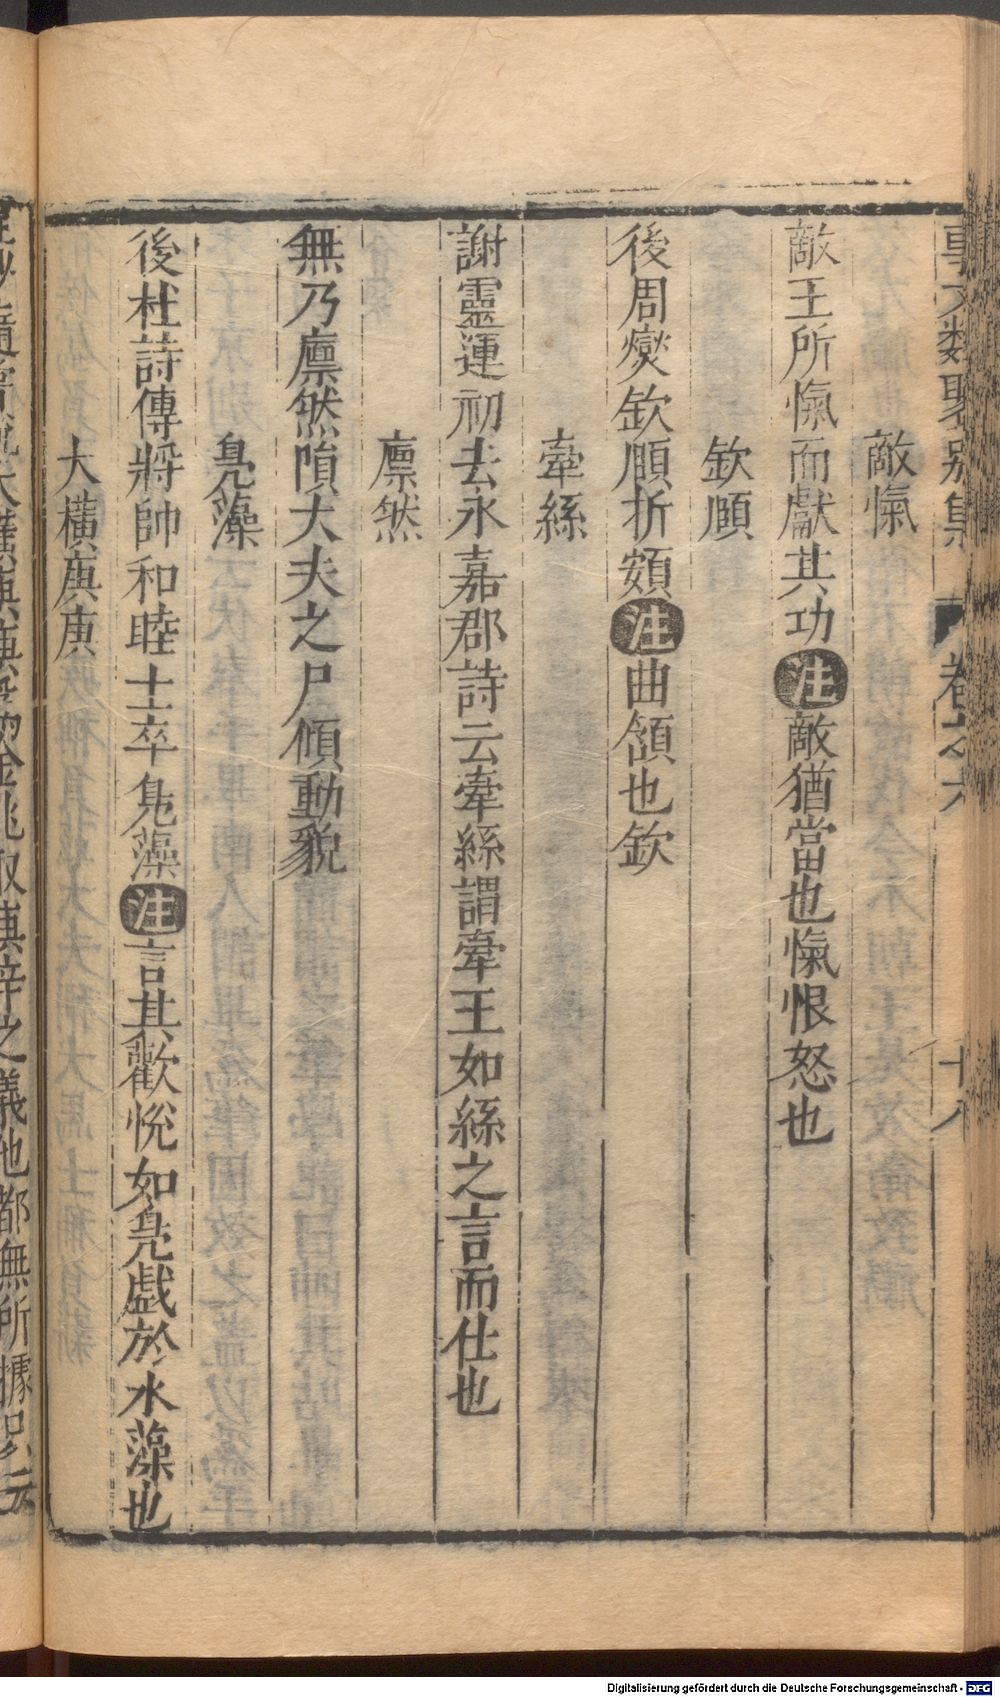 事文類聚別集 卷之六 十八
敵愾
敵王所愾而獻其功注敵猶當也愾恨怒也
欽頤
後周燮欽頤折頞注曲頷也欽
牽絲
謝靈運初去永嘉郡詩云牽絲謂牽王如絲之言而仕也
廩然
無乃廩然隤大夫之尸傾動貌
鳧藻
後杜詩傳將帥和睦士卒鳧藻注言其歡悅如鳧戲於水藻也
大橫庚庚
Digitalisierung gefördert durch die Deutsche Forschungsgemeinschaft - DFG